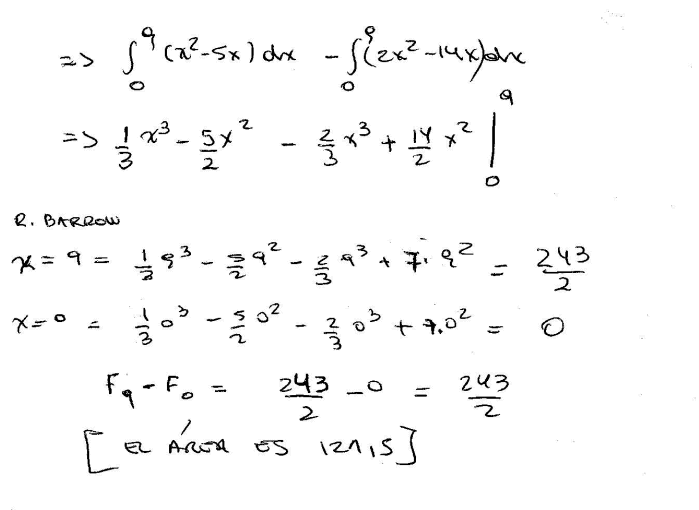 => ∫₀⁹ (x²-5x) dx - ∫₀⁹ (2x²-14x) dx
=> 1/3 x³ - 5x²/2 - 2/3 x³ + 14/2 x² |₀⁹
R. BARROW
x = 9 = 1/3 9³ - 5/2 9² - 2/3 9³ + 7·9² = 243/2
x=0 = 1/3 0³ - 5/2 0² - 2/3 0³ + 7·0² = 0
F₉ - F₀ = 243/2 - 0 = 243/2
[ EL ÁREA ES 121,5 ]